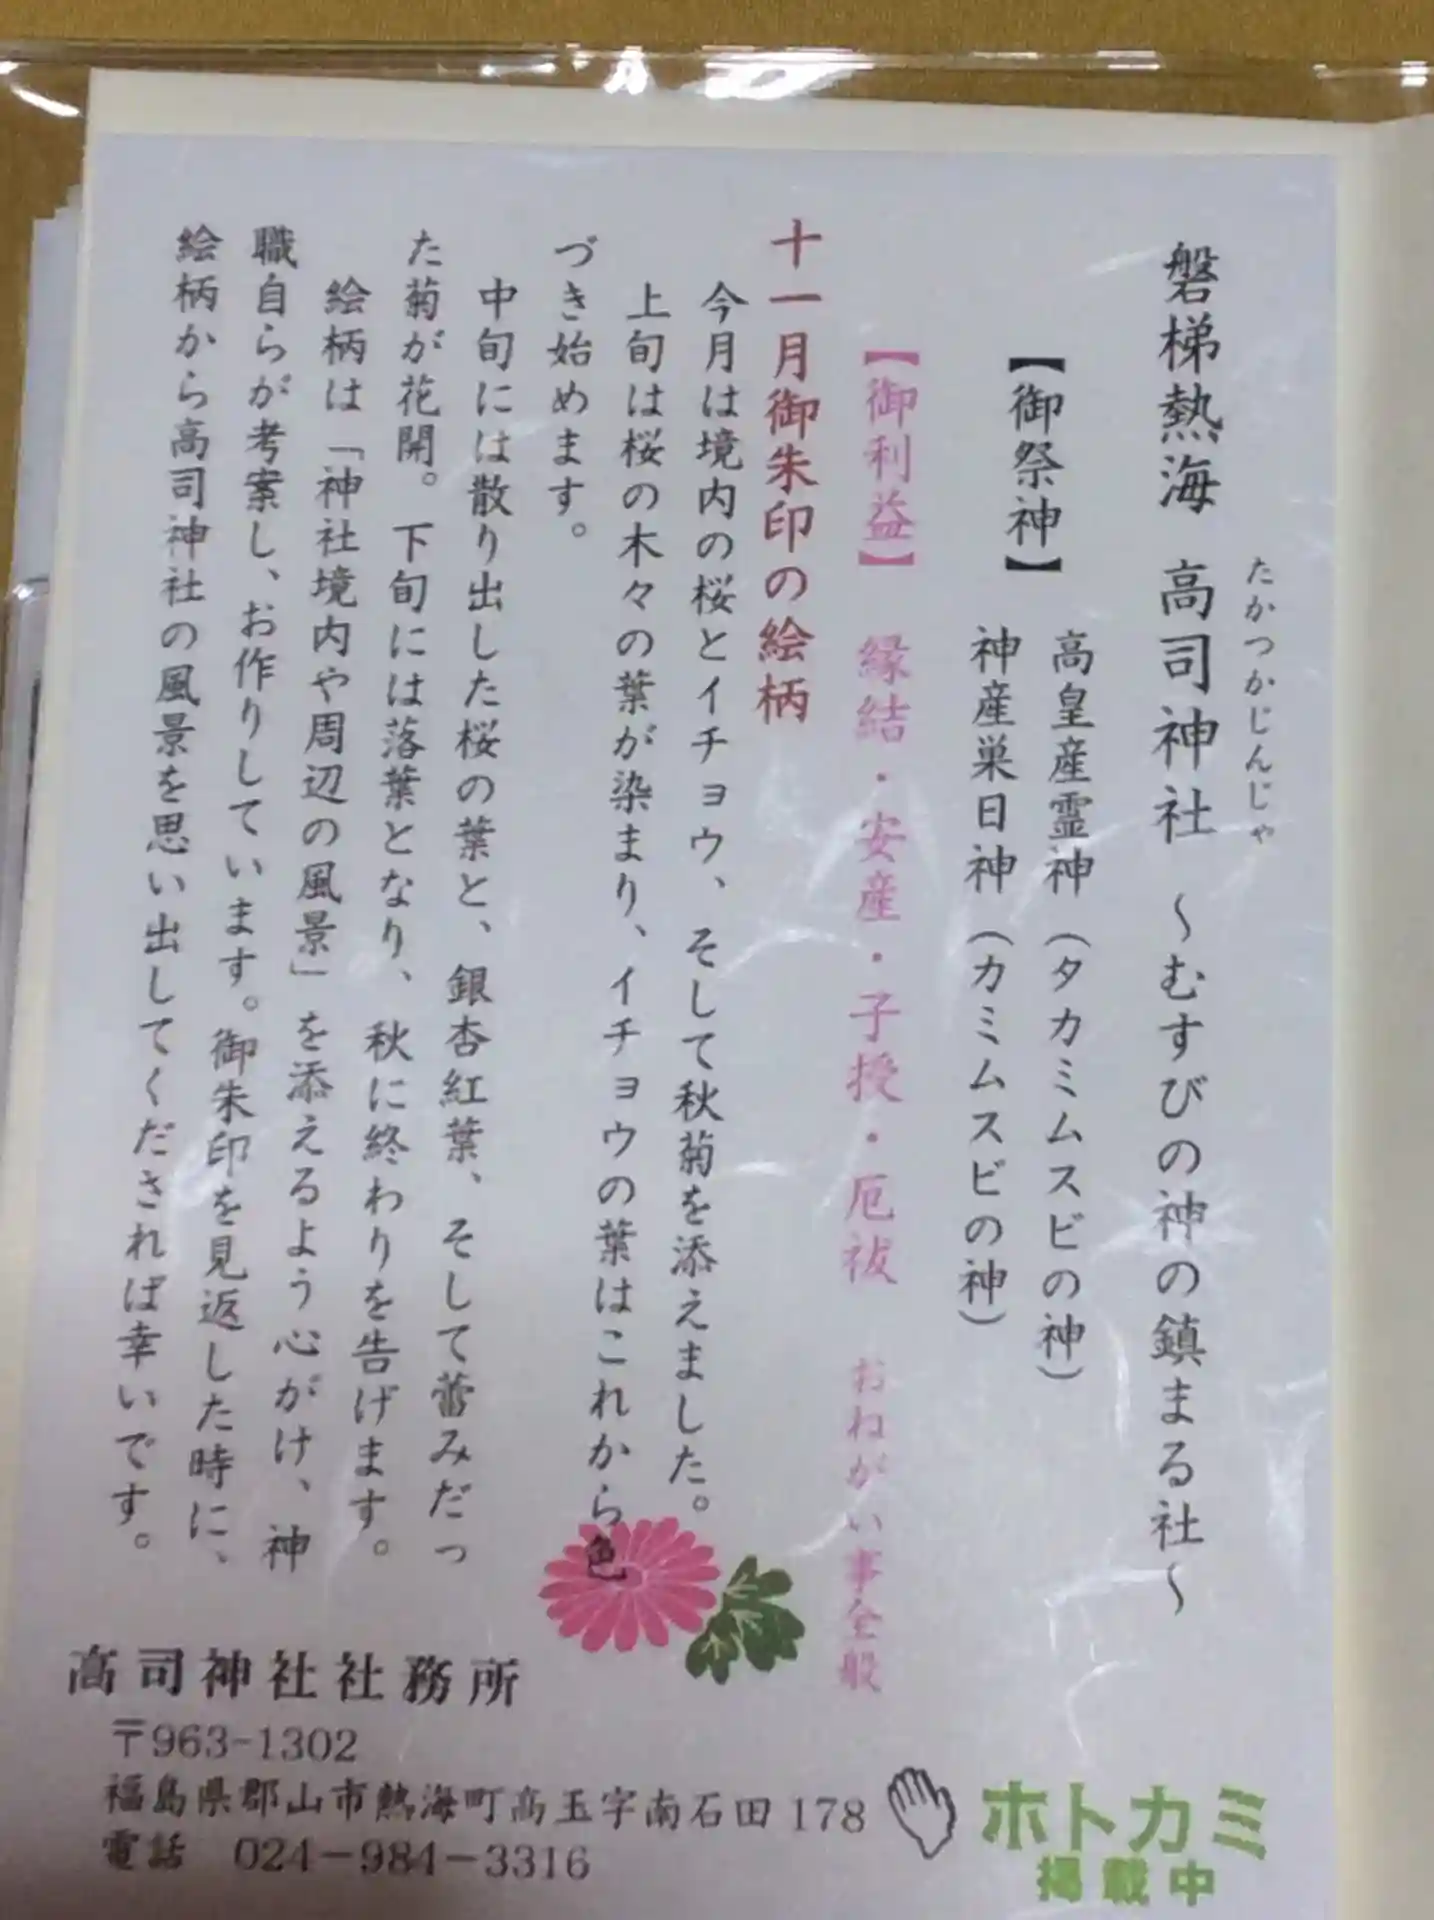 たかつかじんじゃ
磐梯熱海 高司神社 ～むすびの神の鎮まる社～
【御祭神】 高皇産霊神(タカミムスビの神)
神産巣日神(カミムスビの神)
【御利益】 縁結・安産・子授・厄祓 おねがい事全般
十一月御朱印の絵柄
今月は境内の桜とイチョウ、そして秋菊を添えました。
上旬は桜の木々の葉が染まり、イチョウの葉はこれから色
づき始めます。
中旬には散り出した桜の葉と、銀杏紅葉、そして蕾みだっ
た菊が花開。下旬には落葉となり、秋に終わりを告げます。
絵柄は「神社境内や周辺の風景」を添えるよう心がけ、神
職自らが考案し、お作りしています。御朱印を見返した時に、
絵柄から高司神社の風景を思い出してくだされば幸いです。
高司神社社務所
〒963-1302
福島県郡山市熱海町高玉字南石田178
電話 024-984-3316
ホトカミ
掲載中